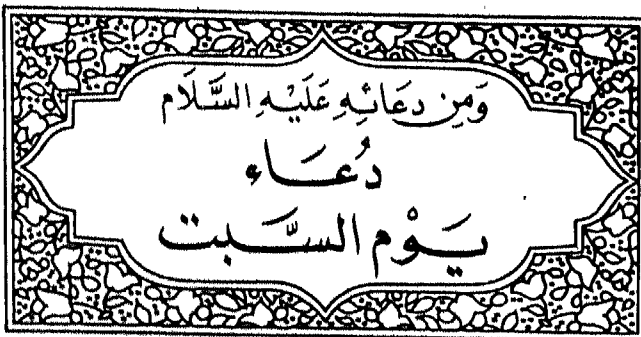 وَمِنْ دُعَائِهِ عَلَيْهِ السَّلَام
دُعَاء
يَوْم السَّبت